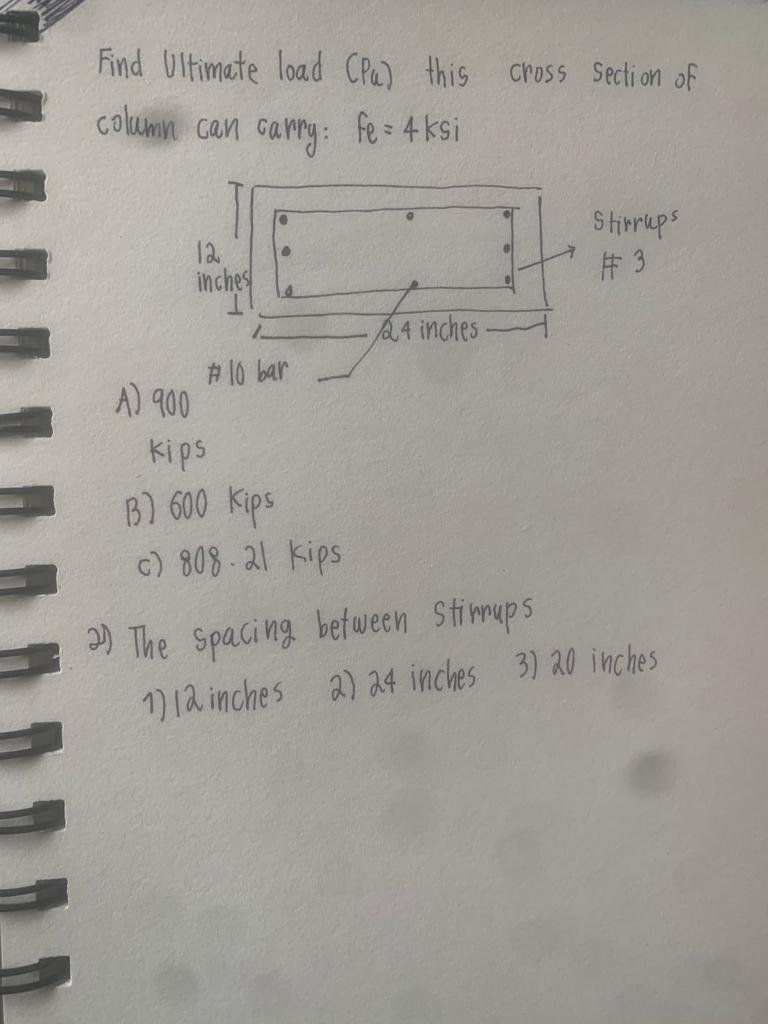 Find Ultimate load (Pu) this cross section of
column can carry: fe = 4 ksi
Stirrups
# 3
12
inches
24 inches
# 10 bar
A) 900
kips
B) 600 Kips
C) 808.21 kips
2) The spacing between stirrups
1) 12 inches 2) 24 inches 3) 20 inches